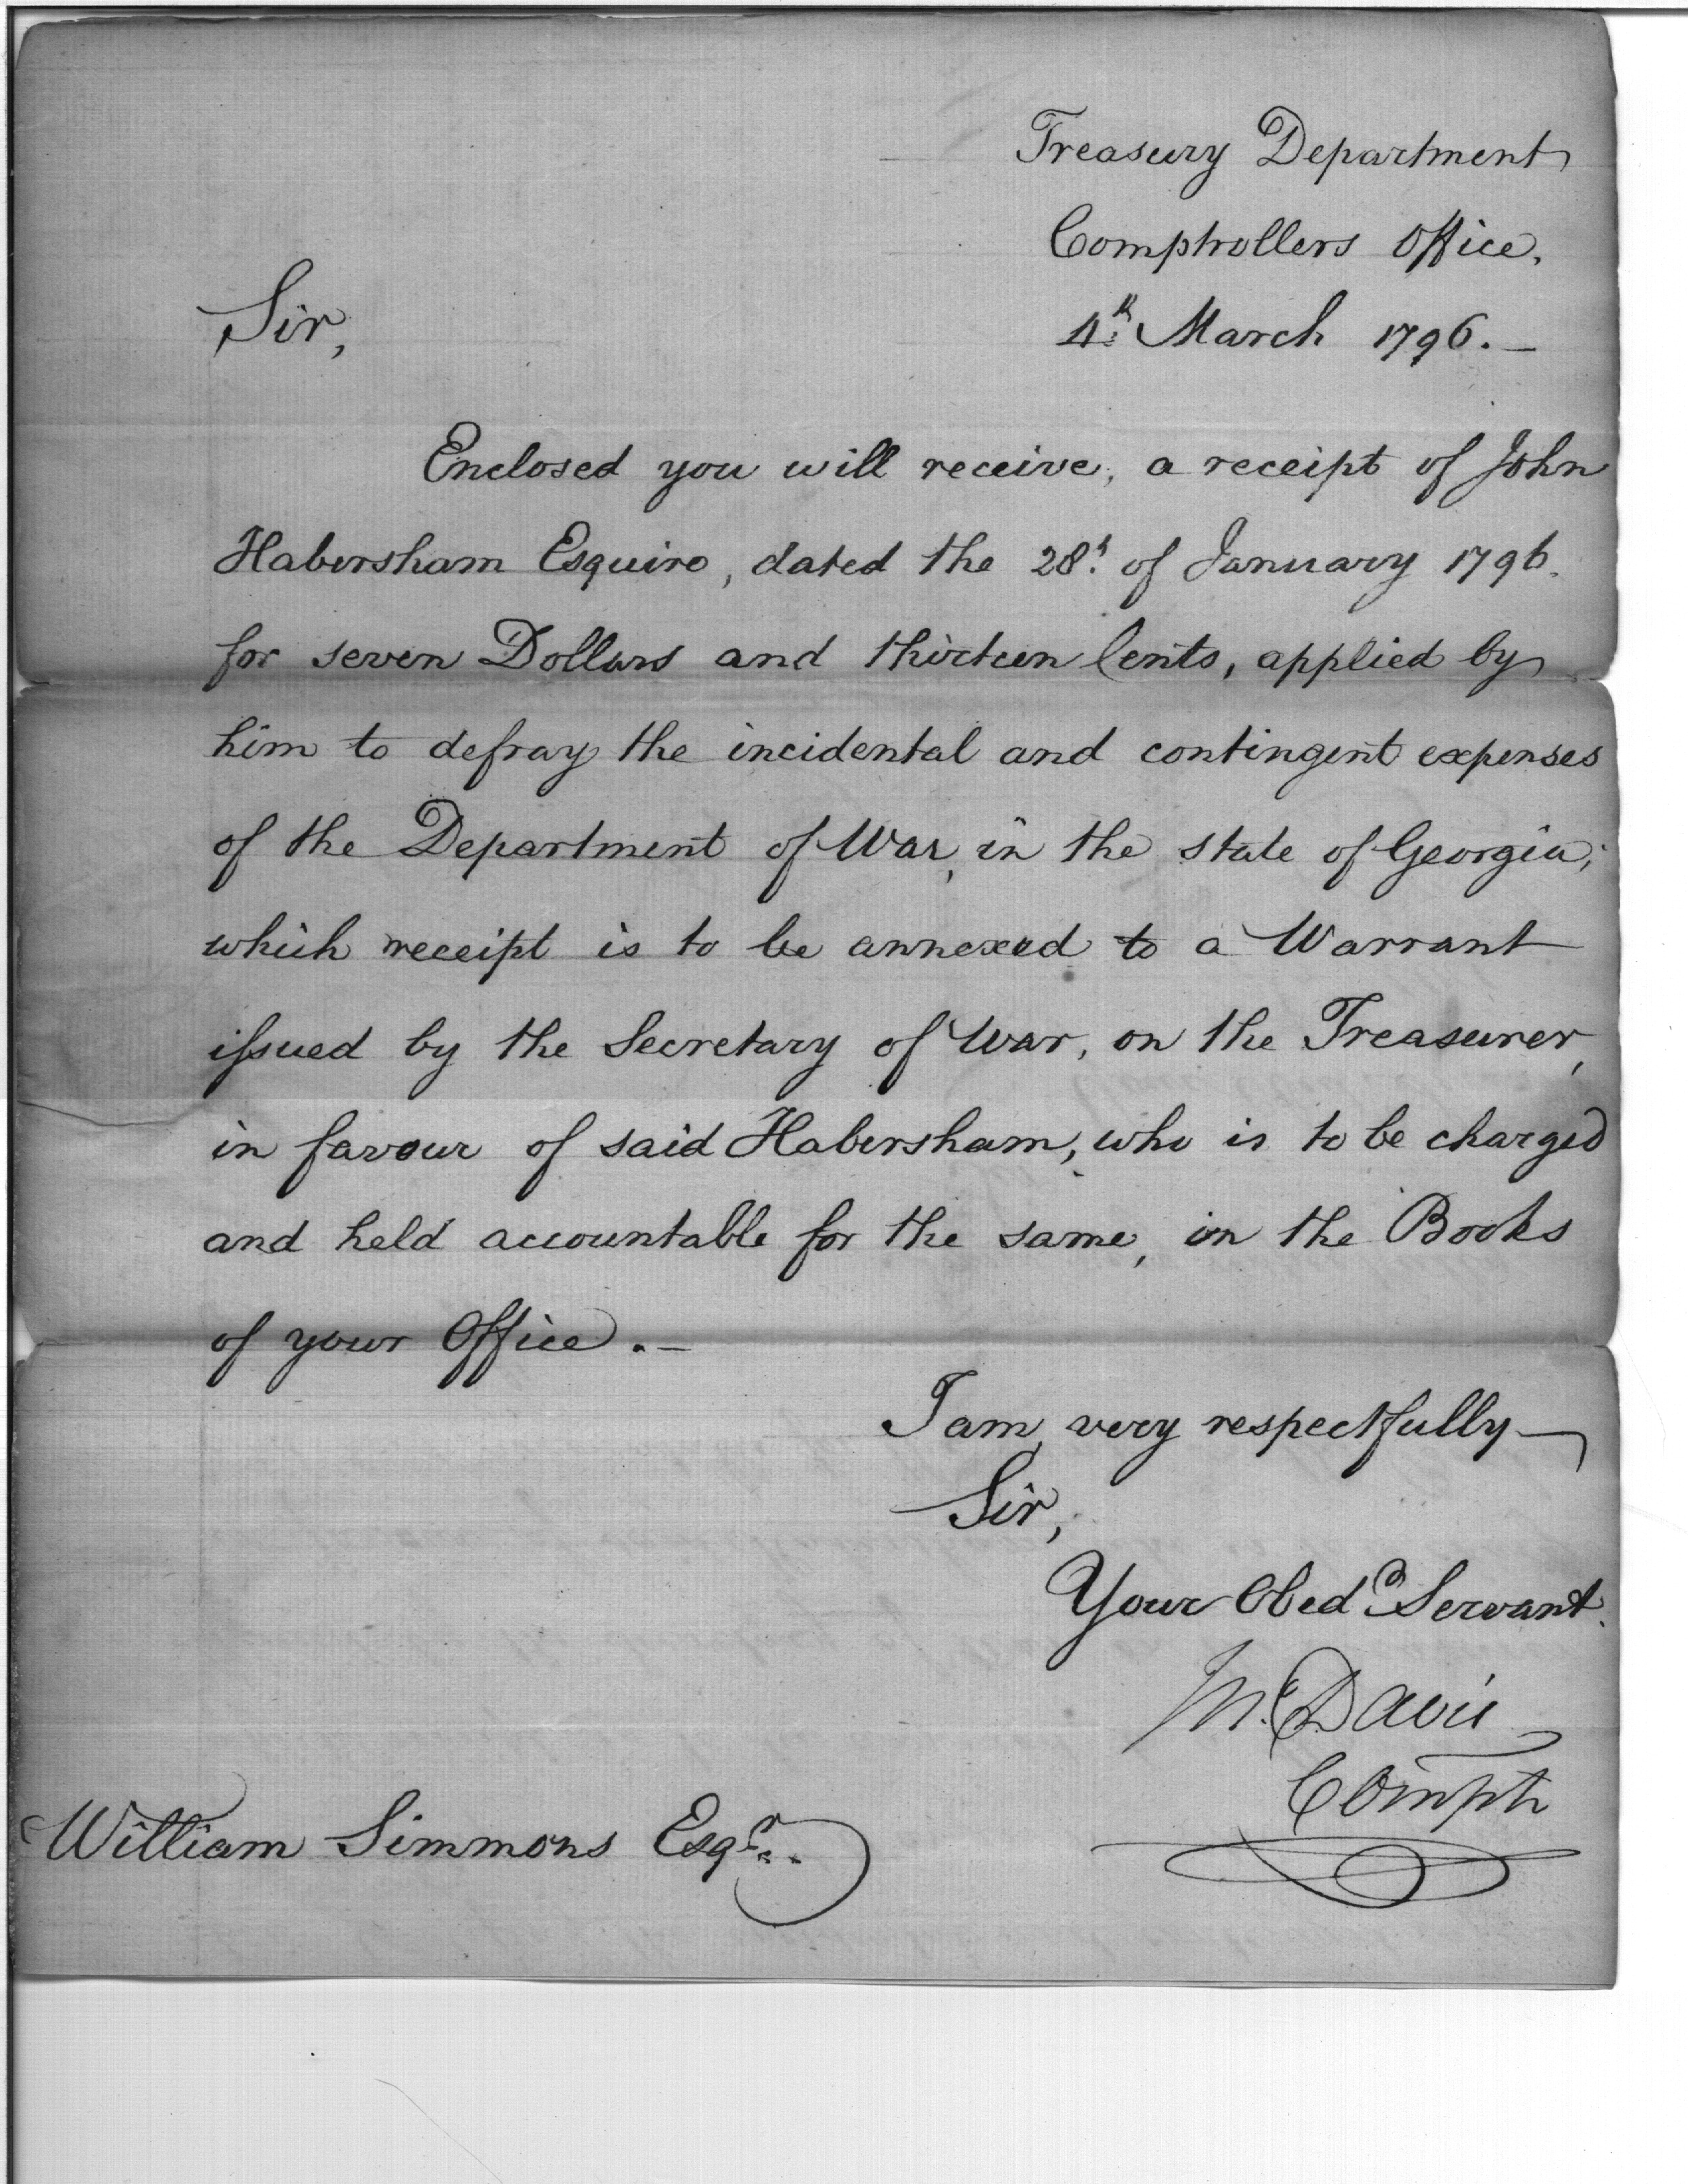 Treasury Department
Comptrollers Office.
Sir,
4th March 1796.—
Enclosed you will receive, a receipt of John
Habersham Esquire, dated the 28th of January 1796.
for seven Dollars and thirteen Cents, applied by
him to defray the incidental and contingent expenses
of the Department of War, in the state of Georgia;
which receipt is to be annexed to a Warrant
issued by the Secretary of War, on the Treasurer,
in favour of said Habersham, who is to be charged
and held accountable for the same, in the Books
of your Office.—
I am very respectfully—
Sir,
Your Obed. Servant.
Davis
Comptr
William Simmons Esqr.